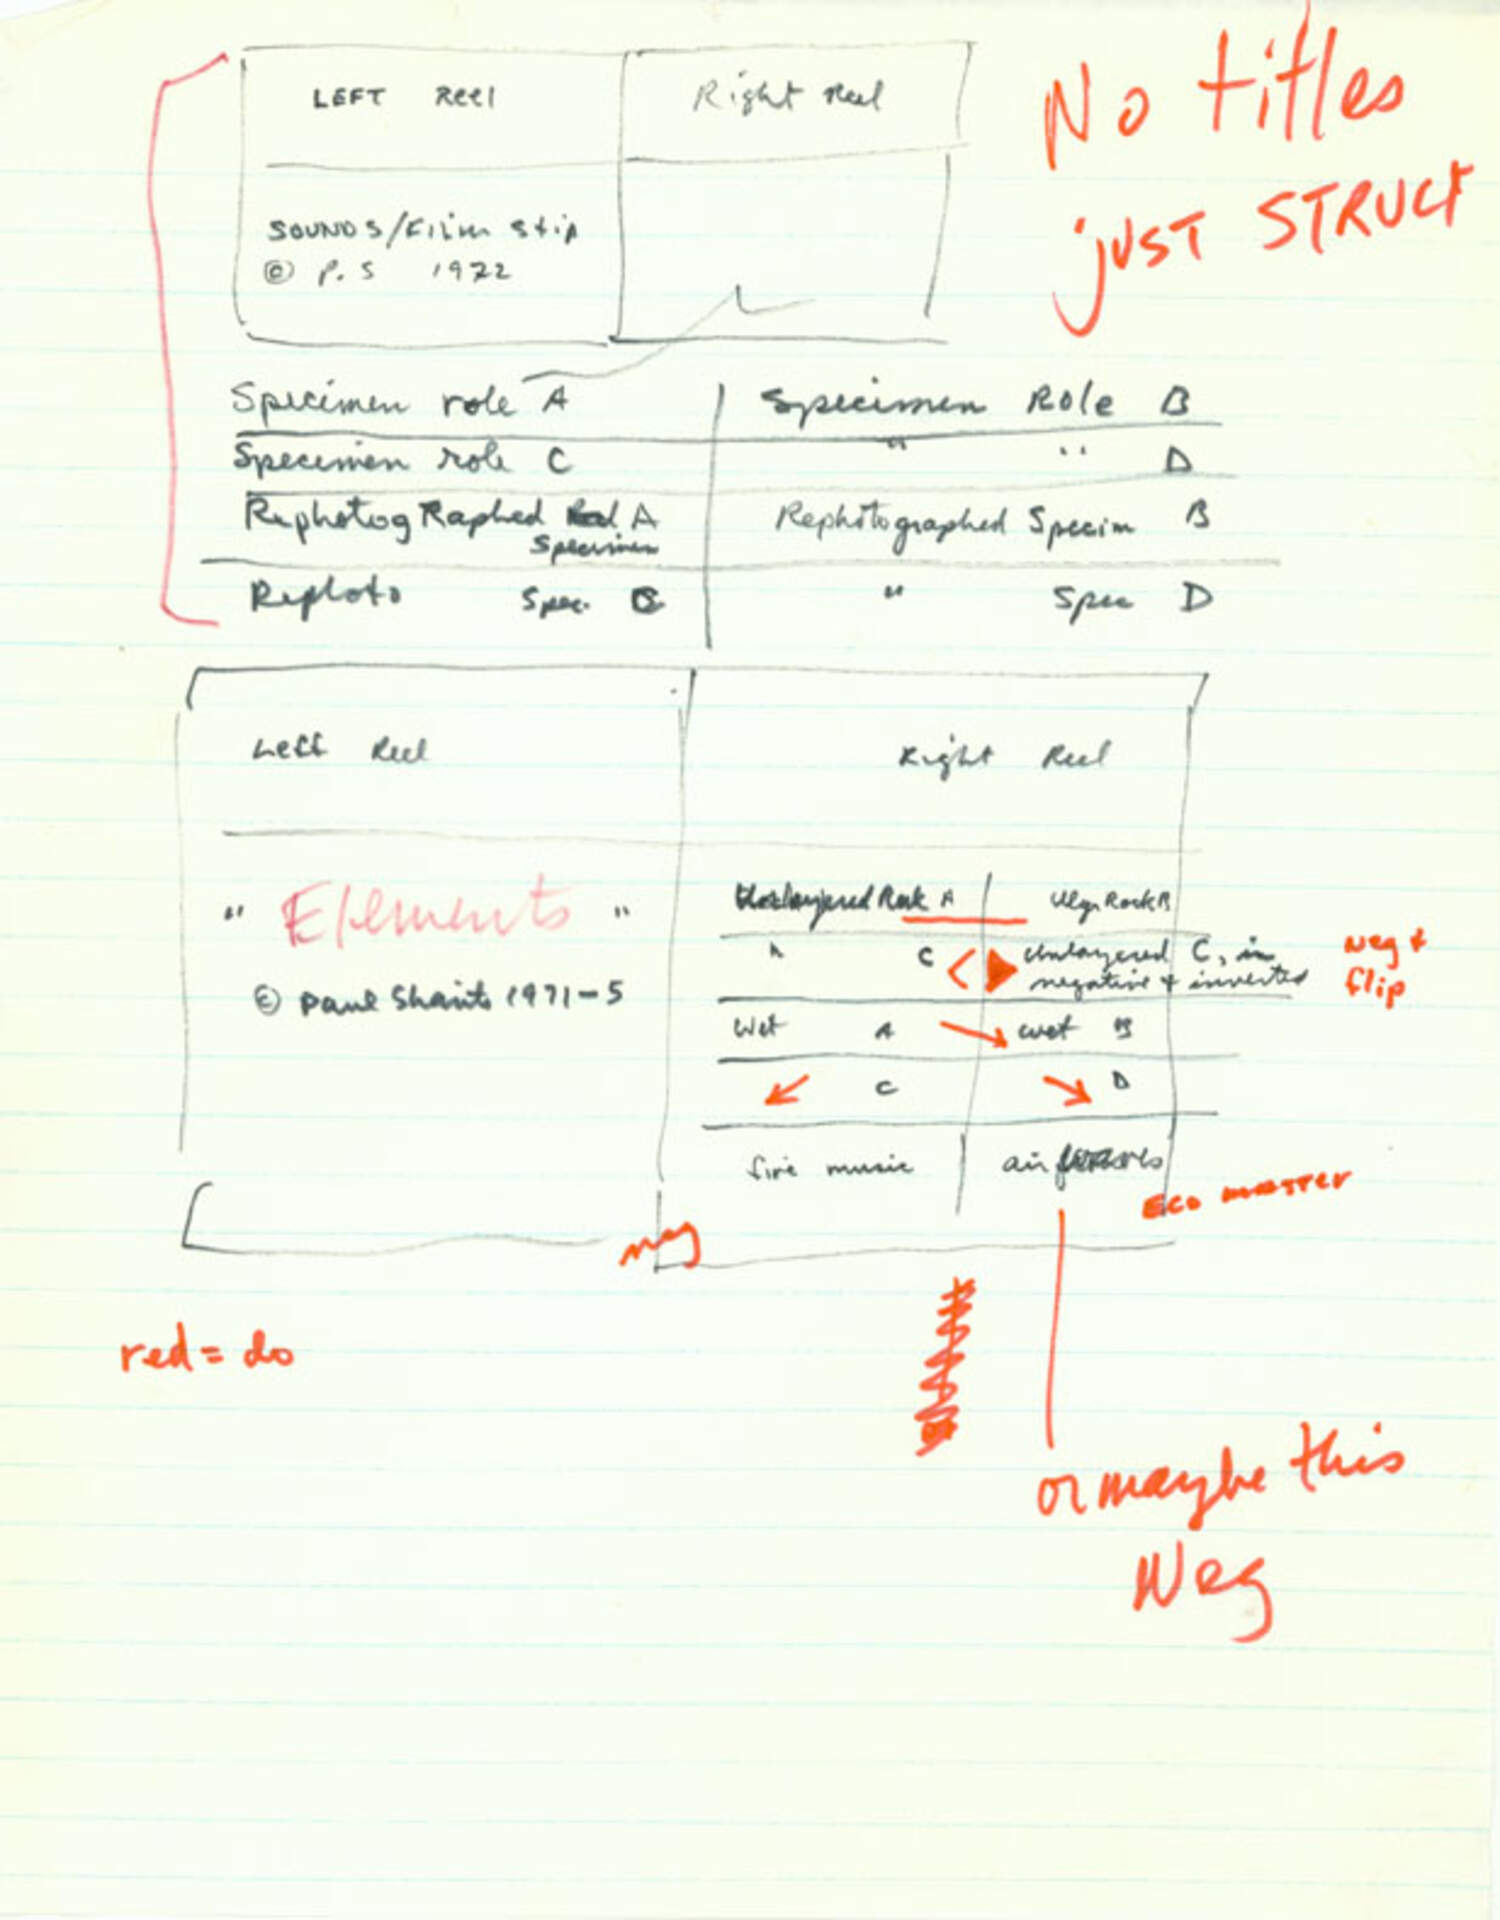 No titles
just STRUCT
LEFT Reel Right reel
SOUNDS/Film Stip
© P.S 1972
Specimen role A Specimen Role B
Specimen role C " " D
RephotogRaphed A Rephotographed Specim B
Specimen
Rephoto Spec. C " Spec D
Left Reel Right Reel
" Elements "
© Paul Sharits 1971-5
Unlayered Rock A Rock B
A C Unlayered C, in
negative & inverted
Neg &
flip
Wet A wet B
C D
fire music air
ECO
neg
red = do
or maybe this
Neg